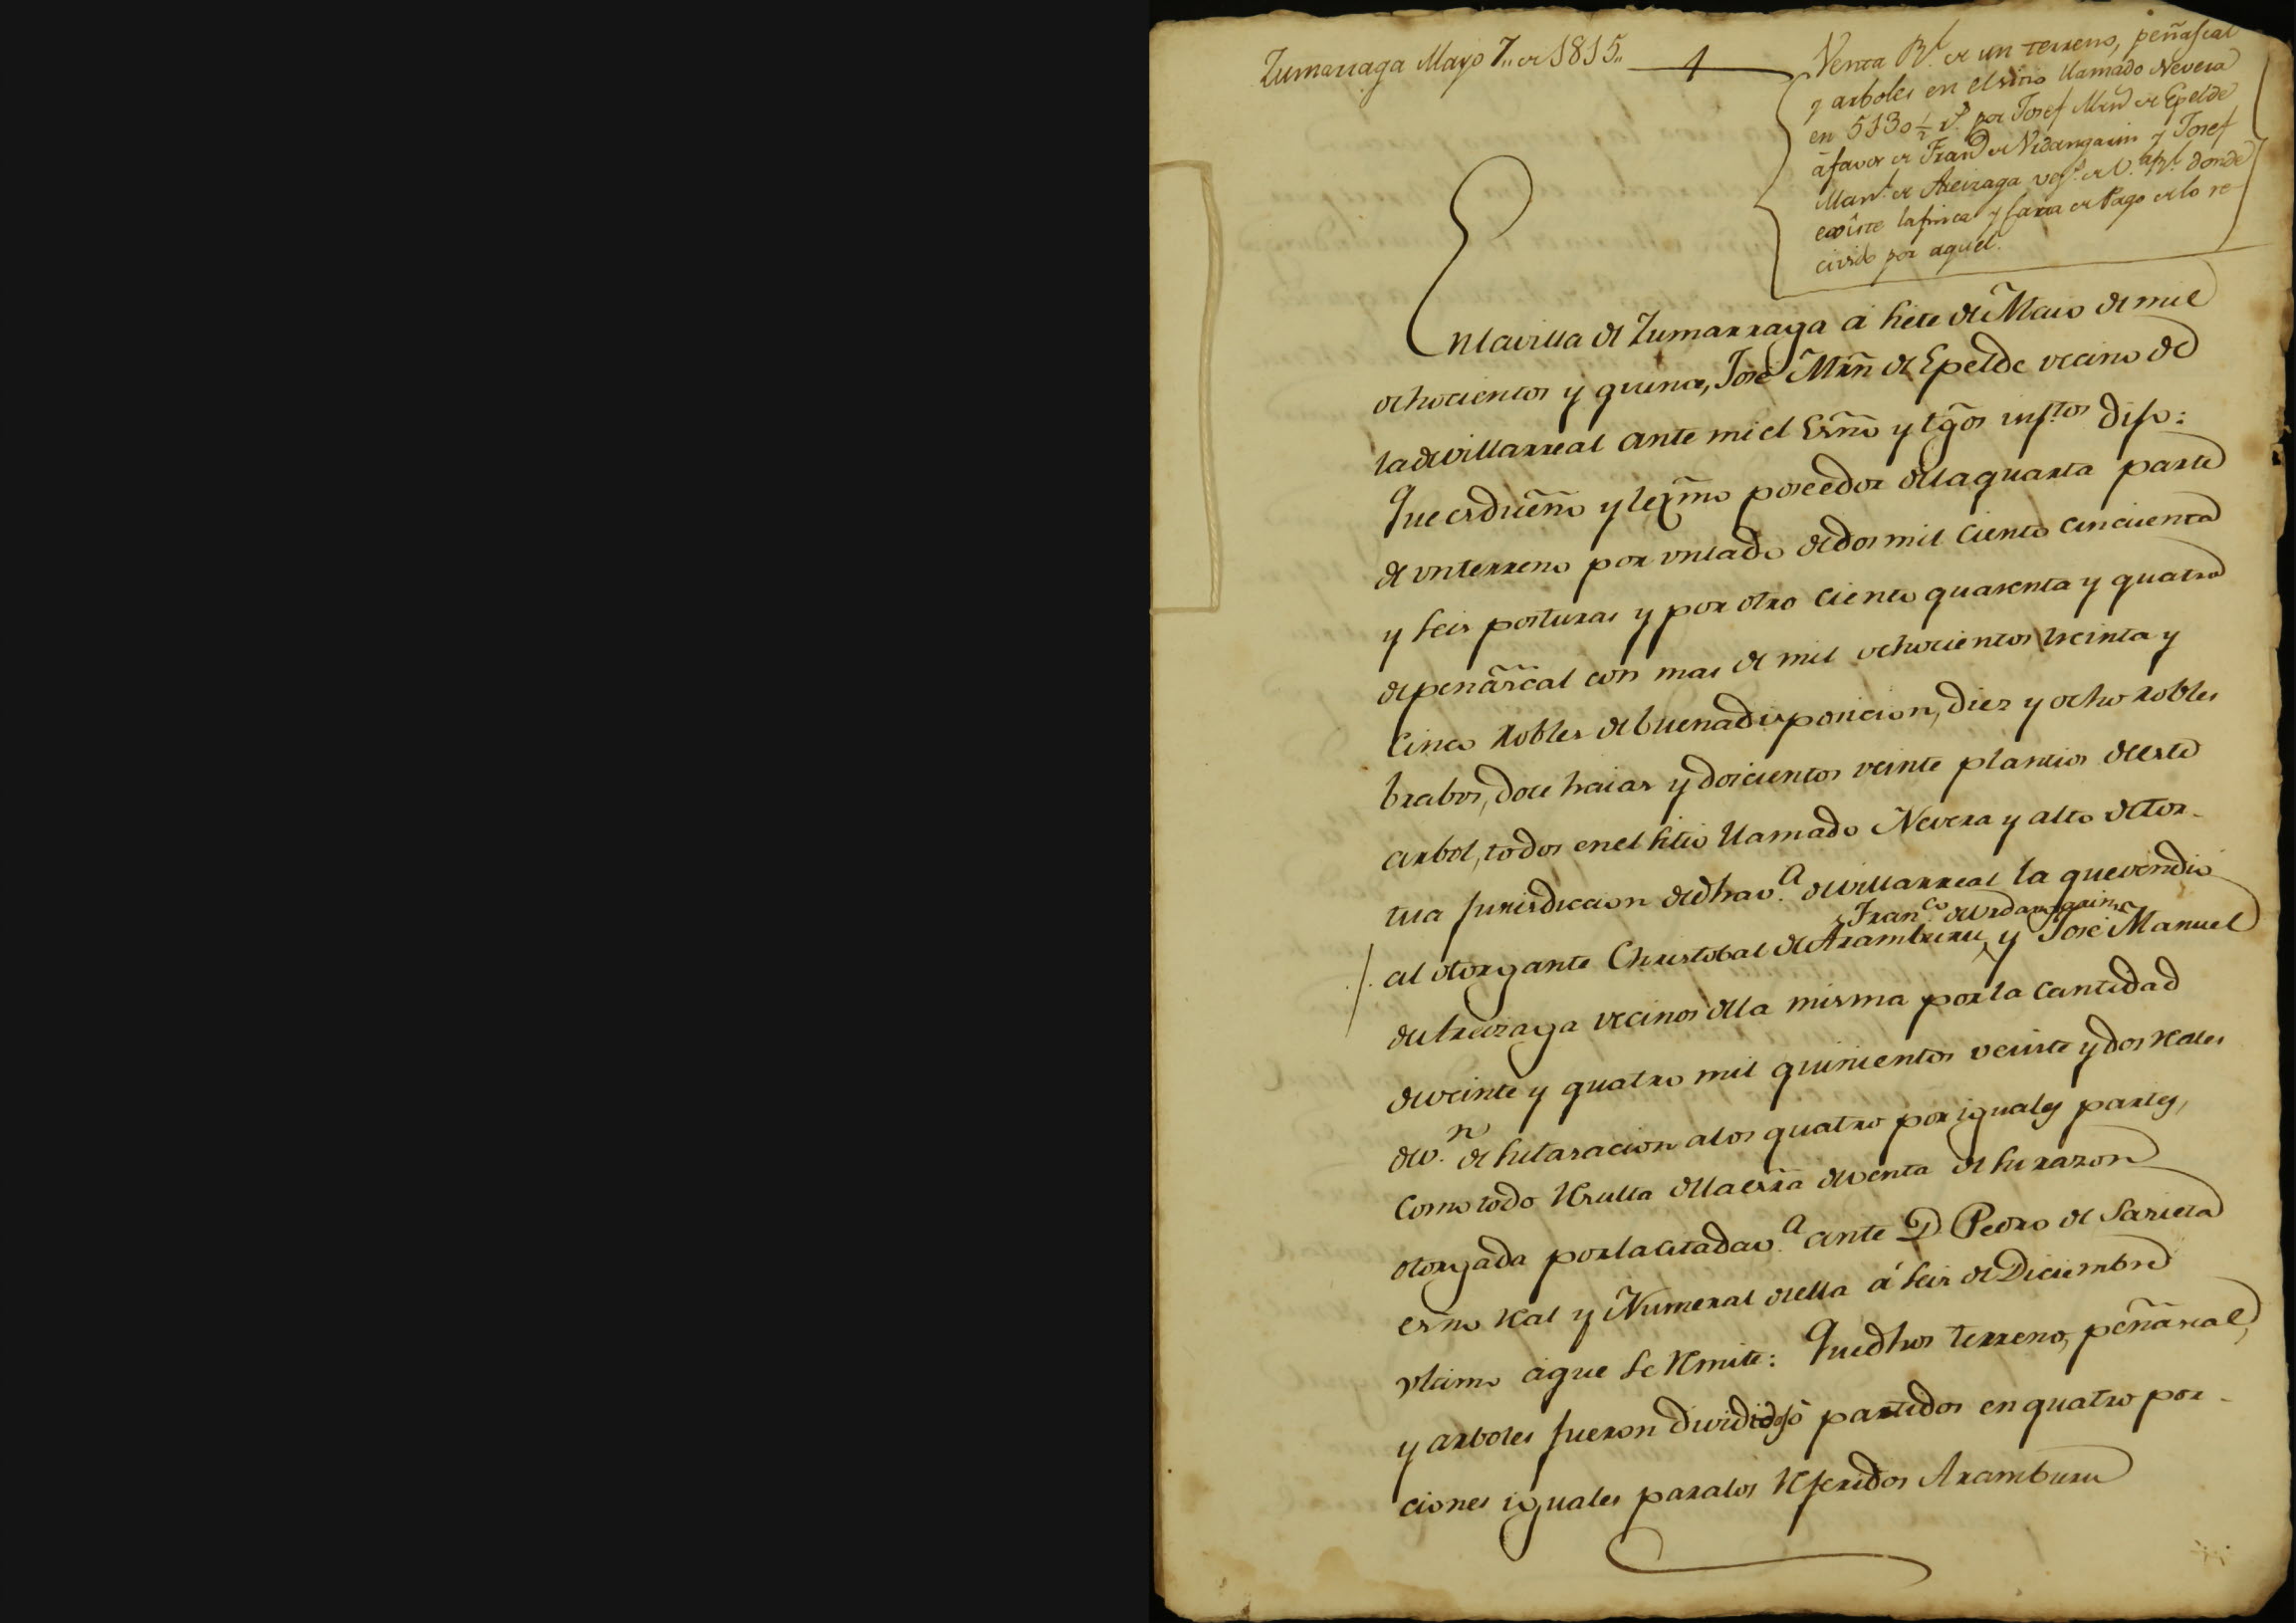 Zumarraga Mayo 7,, de 1815,,
1
Venta Rl. de un terreno, peñascal
y arboles en el sitio llamado Nevera
en 5130 1/2 rs. por Josef Mrn de Epelde
à favor de Franco de Vrdangarin y Josef
Manl. de Areizaga vs. de Va. Rl. donde
existe la finca y carta de Pago de lo re-
civido por aquel.
En la villa de Zumarraga á siete de Maio de mil
ochocientos y quince, José Mrñ de Epelde vecino de
la de villarreal ante mi el Esrño y tgõs infrtos dijo:
Que es dueño y lexmo poseedor de la quarta parte
de un terreno por un lado de dos mil ciento cincuenta
y seis posturas y por otro ciento quarenta y quatro
de peñascal con mas de mil ochocientos treinta y
cinco robles de buena disposicion, diez y ocho robles
brabos, doce haias y doscientos veinte plantios de este
arbol, todos en el sitio llamado Nevera y alto de Tor-
tua jurisdiccion de dha va. de villarreal la que vendio
Franco. de Vrdangarin
al otorgante Christobal de Aramburu, y José Manuel
de Areizaga vecinos de la misma por la cantidad
de veinte y quatro mil quinientos veinte y dos reales
de vn. de su tasacion a los quatro por iguales partes,
como todo resulta de la esrã de venta de su razon
otorgada por la citada va. ante D. Pedro de Sarieta
esrño real y Numeral de ella á seis de Diciembre
ultimo á que se remite: Que dhos terreno, peñascal,
y arboles fueron divididos ó partidos en quatro por-
ciones iguales para los referidos Aramburu